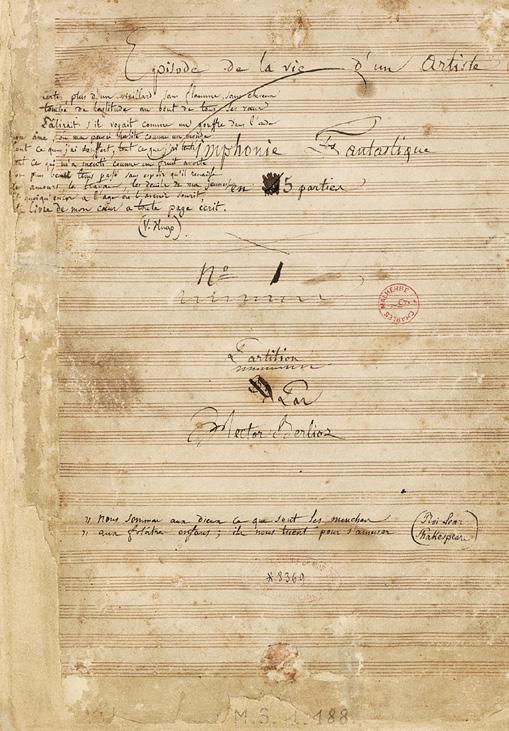 Episode de la vie d'un Artiste
certe, plus d'un vieillard sans flamme, sans cheveux
tombé de lassitude au bout de tous ses vœux
Pâlirait s'il voyait comme un gouffre dans l'onde
mon âme où ma pensée habite comme un monde
tout ce que j'ai souffert, tout ce que j'ai tenté
tout ce qui m'a menti comme un fruit avorté
mon plus beau temps passé sans espoir qu'il renaisse
les amours, les travaux, les deuils de ma jeunesse
et quoiqu'encor à l'age où l'avenir sourit
le livre de mon cœur à toute page écrit.
(V. Hugo)
Symphonie Fantastique
en 5 parties
No 1
Partition
Par
Hector Berlioz
MALHERBE
CHARLES
» nous sommes aux dieux ce que sont les mouches
» aux folâtres enfans ; ils nous tuent pour s'amuser
(Roi Lear
Shakespeare)
*8369
M.S. 1.188